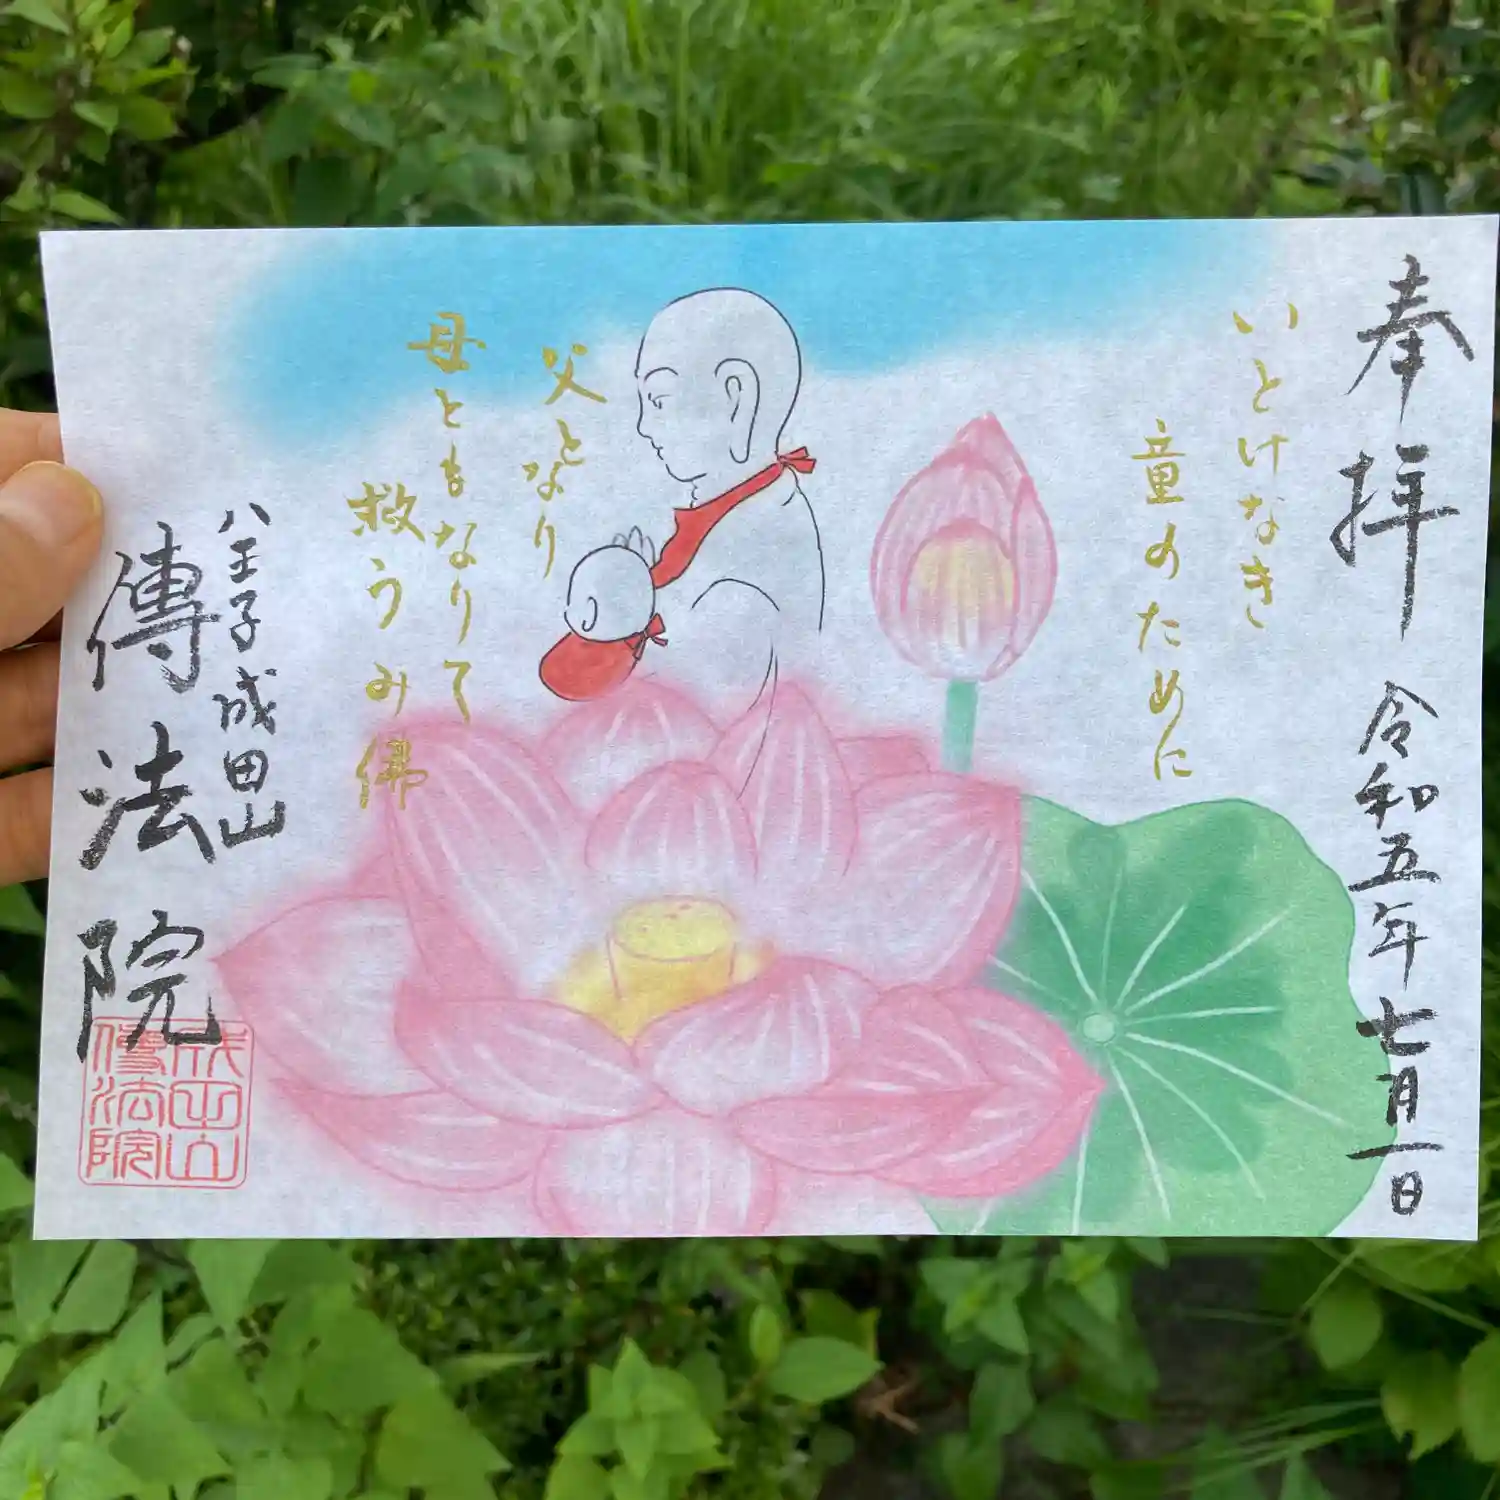 奉拝
令和五年七月一日
いとけなき
童のために
父となり
母ともなりて
救うみ佛
八王子成田山
傳法院
成田山
傳法院